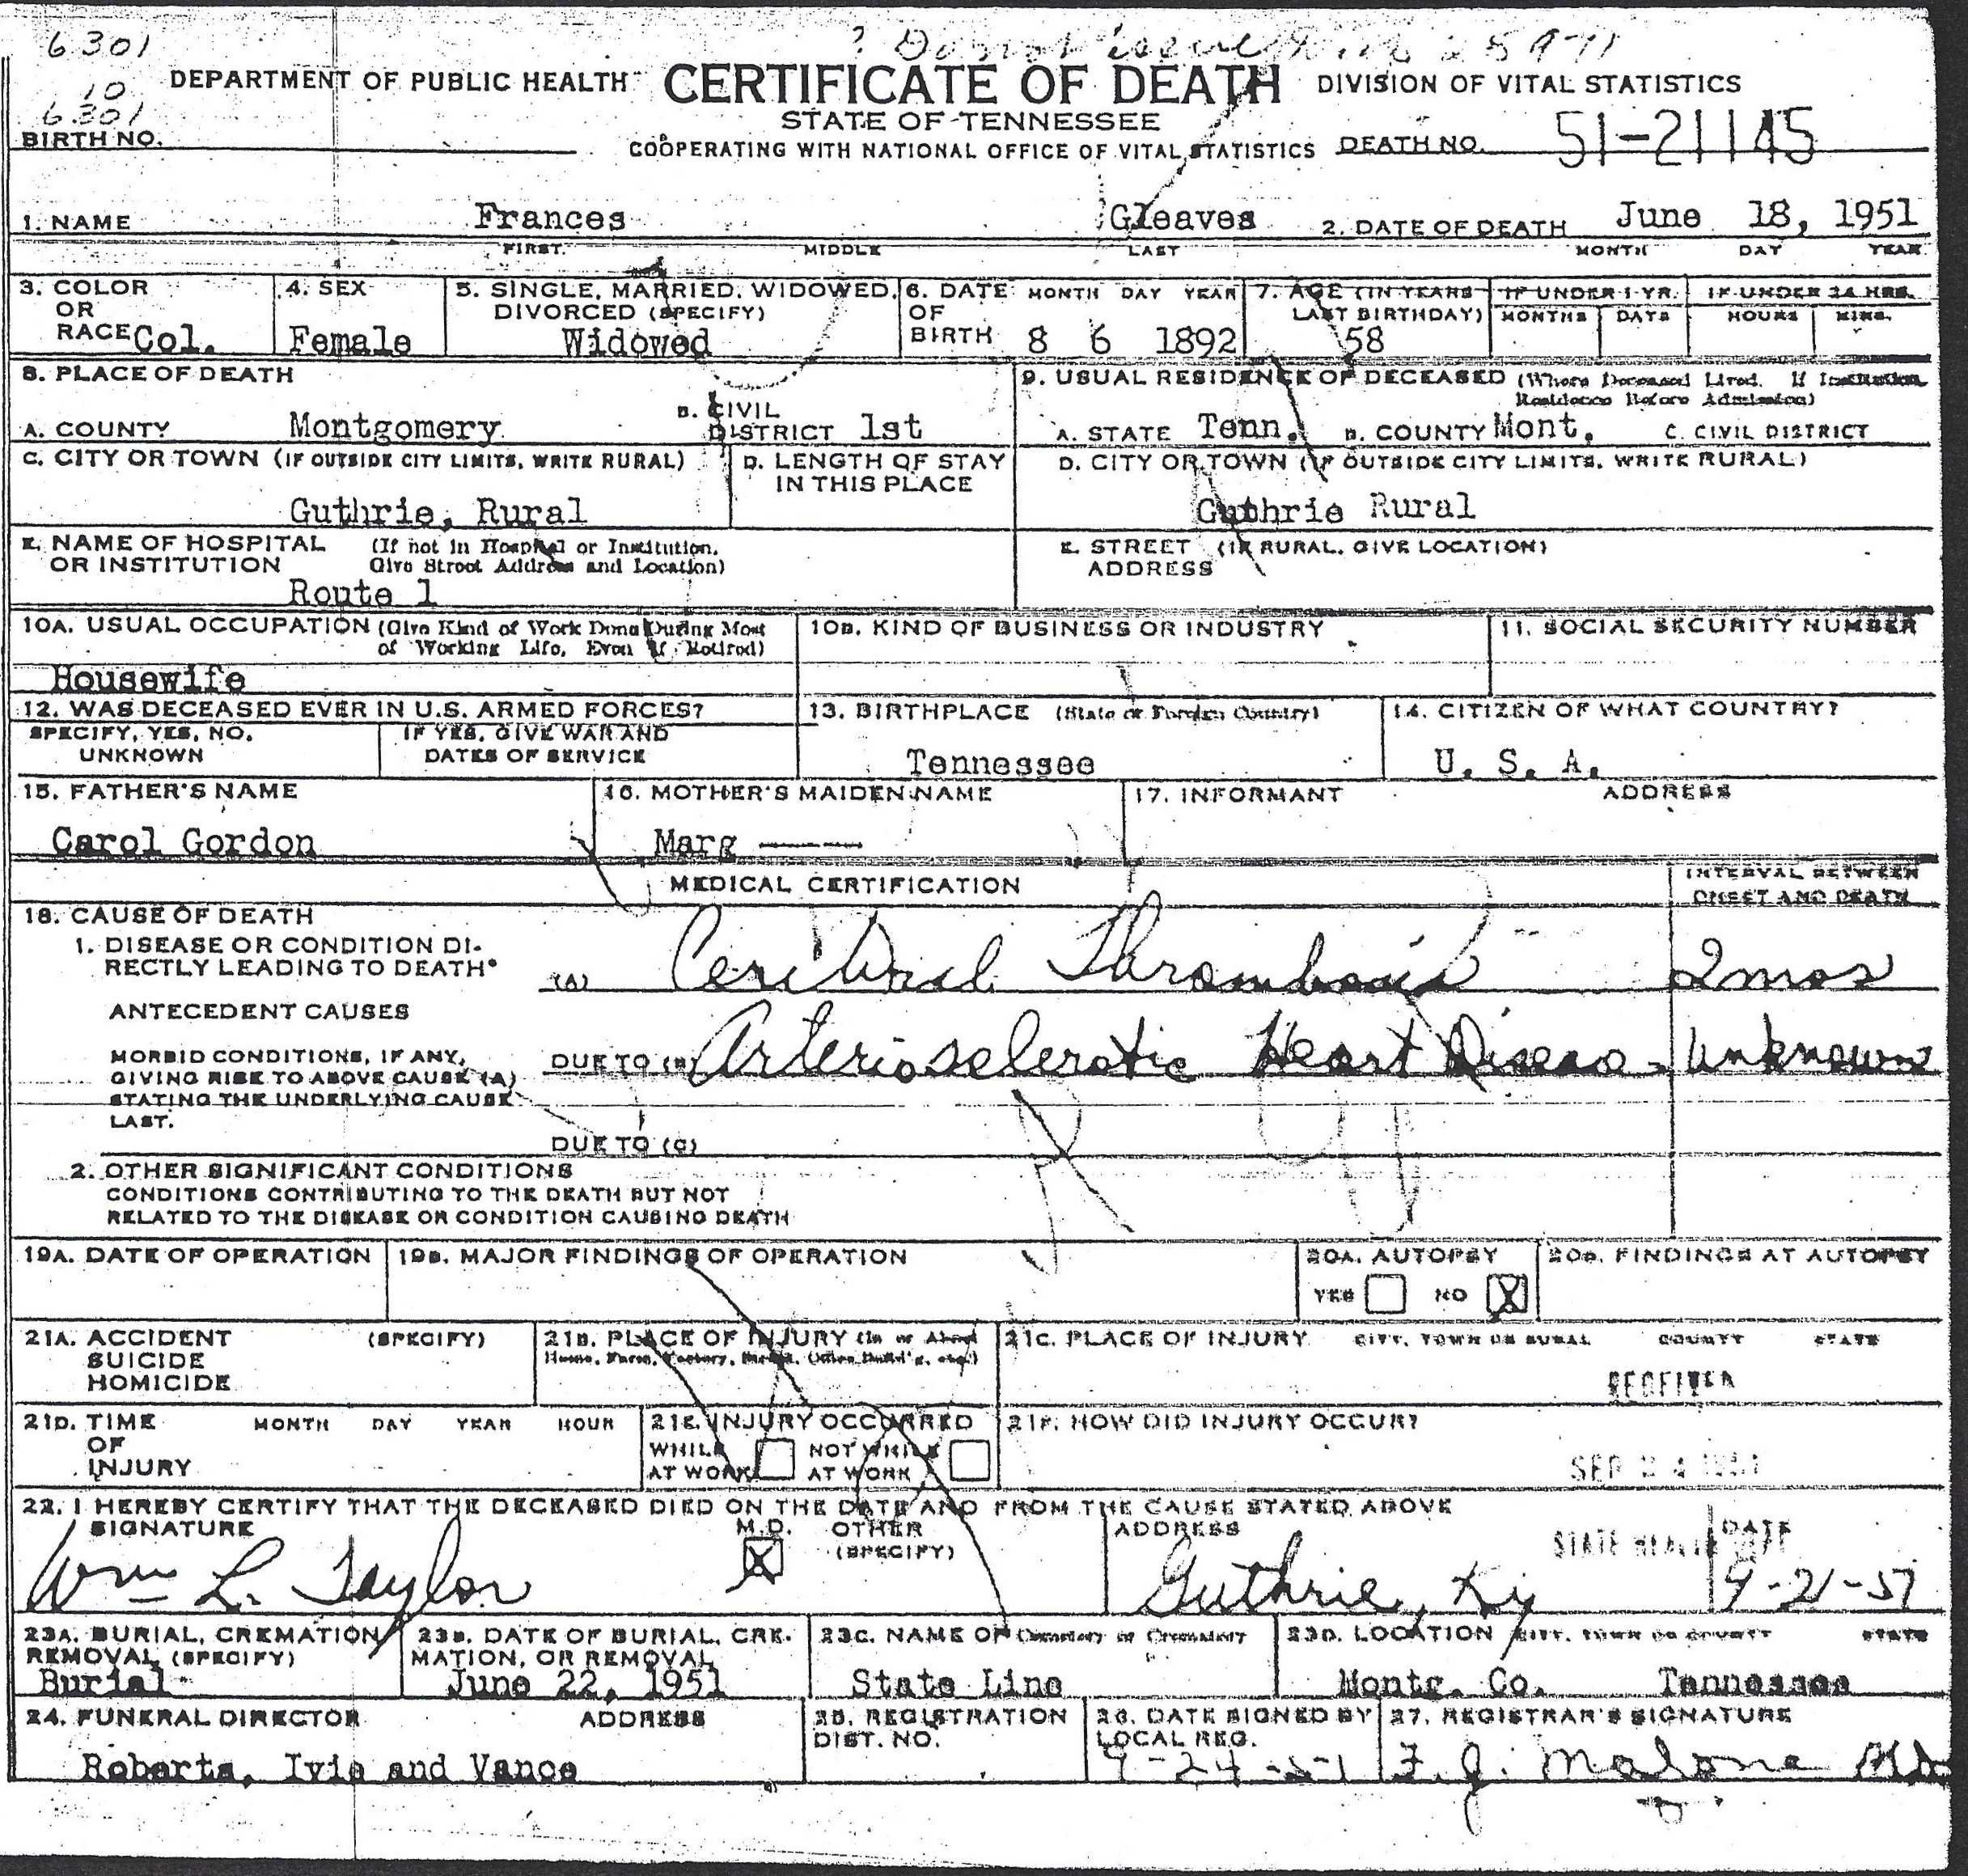 6301
DEPARTMENT OF PUBLIC HEALTH CERTIFICATE OF DEATH DIVISION OF VITAL STATISTICS
10
6301
STATE OF TENNESSEE
BIRTH NO. COOPERATING WITH NATIONAL OFFICE OF VITAL STATISTICS DEATH NO. 51-21145
1. NAME Frances Gleaves 2. DATE OF DEATH June 18, 1951
FIRST MIDDLE LAST MONTH DAY YEAR
3. COLOR OR RACE Col.
4. SEX Female
5. SINGLE, MARRIED, WIDOWED, DIVORCED (SPECIFY) Widowed
6. DATE OF BIRTH MONTH DAY YEAR 8 6 1892
7. AGE (IN YEARS LAST BIRTHDAY) 58
IF UNDER 1 YR. MONTHS DAYS
IF UNDER 24 HRS. HOURS MINS.
8. PLACE OF DEATH
A. COUNTY Montgomery B. CIVIL DISTRICT 1st
C. CITY OR TOWN (IF OUTSIDE CITY LIMITS, WRITE RURAL) Guthrie, Rural
D. LENGTH OF STAY IN THIS PLACE
E. NAME OF HOSPITAL OR INSTITUTION (If not in Hospital or Institution, Give Street Address and Location)
Route 1
9. USUAL RESIDENCE OF DECEASED (Where Deceased Lived. If Institution, Residence Before Admission)
A. STATE Tenn. B. COUNTY Mont. C. CIVIL DISTRICT
D. CITY OR TOWN (IF OUTSIDE CITY LIMITS, WRITE RURAL)
Guthrie Rural
E. STREET ADDRESS (IF RURAL, GIVE LOCATION)
10A. USUAL OCCUPATION (Give Kind of Work Done During Most of Working Life, Even If Retired)
Housewife
10B. KIND OF BUSINESS OR INDUSTRY
11. SOCIAL SECURITY NUMBER
12. WAS DECEASED EVER IN U.S. ARMED FORCES?
SPECIFY, YES, NO, UNKNOWN
IF YES, GIVE WAR AND DATES OF SERVICE
13. BIRTHPLACE (State or Foreign Country)
Tennessee
14. CITIZEN OF WHAT COUNTRY?
U. S. A.
15. FATHER'S NAME
Carol Gordon
16. MOTHER'S MAIDEN NAME
Marg ----
17. INFORMANT ADDRESS
MEDICAL CERTIFICATION
INTERVAL BETWEEN ONSET AND DEATH
18. CAUSE OF DEATH
1. DISEASE OR CONDITION DIRECTLY LEADING TO DEATH* (A) Cerebral Thrombosis 2 mos
ANTECEDENT CAUSES
MORBID CONDITIONS, IF ANY, GIVING RISE TO ABOVE CAUSE (A) STATING THE UNDERLYING CAUSE LAST.
DUE TO (B) Arteriosclerotic Heart Disease - unknown
DUE TO (C)
2. OTHER SIGNIFICANT CONDITIONS
CONDITIONS CONTRIBUTING TO THE DEATH BUT NOT
RELATED TO THE DISEASE OR CONDITION CAUSING DEATH
19A. DATE OF OPERATION
19B. MAJOR FINDINGS OF OPERATION
20A. AUTOPSY YES NO X
20B. FINDINGS AT AUTOPSY
21A. ACCIDENT SUICIDE HOMICIDE (SPECIFY)
21B. PLACE OF INJURY (In or About Home, Farm, Factory, Street, Office Build'g, etc.)
21C. PLACE OF INJURY CITY, TOWN OR RURAL COUNTY STATE
RECEIVED
21D. TIME OF INJURY MONTH DAY YEAR HOUR
21E. INJURY OCCURRED
WHILE AT WORK NOT WHILE AT WORK
21F. HOW DID INJURY OCCUR?
SEP 24 1951
22. I HEREBY CERTIFY THAT THE DECEASED DIED ON THE DATE AND FROM THE CAUSE STATED ABOVE
SIGNATURE Wm L. Taylor
M.D. X OTHER (SPECIFY)
ADDRESS Guthrie, Ky
STATE HEALTH DEPT
DATE 9-21-51
23A. BURIAL, CREMATION REMOVAL (SPECIFY)
Burial
23B. DATE OF BURIAL, CREMATION, OR REMOVAL
June 22, 1951
23C. NAME OF Cemetery or Crematory
State Line
23D. LOCATION CITY, TOWN OR COUNTY STATE
Montg. Co. Tennessee
24. FUNERAL DIRECTOR ADDRESS
Roberts, Ivie and Vance
25. REGISTRATION DIST. NO.
26. DATE SIGNED BY LOCAL REG.
9-24-51
27. REGISTRAR'S SIGNATURE
F. J. Malone MD